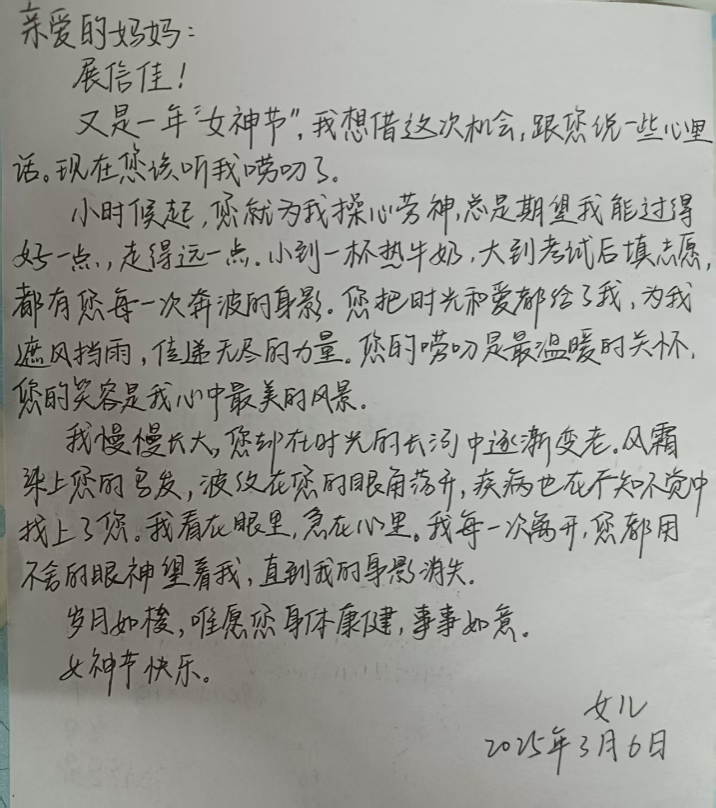 亲爱的妈妈：
展信佳！
又是一年“女神节”，我想借这次机会，跟您说一些心里
话。现在您该听我唠叨了。
小时候起，您就为我操心劳神，总是期望我能过得
好一点，走得远一点。小到一杯热牛奶，大到考试后填志愿，
都有您每一次奔波的身影。您把时光和爱都给了我，为我
遮风挡雨，传递无尽的力量。您的唠叨是最温暖的关怀，
您的笑容是我心中最美的风景。
我慢慢长大，您却在时光的长河中逐渐变老。风霜
染上您的乌发，波纹在您的眼角荡开，疾病也在不知不觉中
找上了您。我看在眼里，急在心里。我每一次离开，您都用
不舍的眼神望着我，直到我的身影消失。
岁月如梭，唯愿您身体康健，事事如意。
女神节快乐。
女儿
2025年3月6日